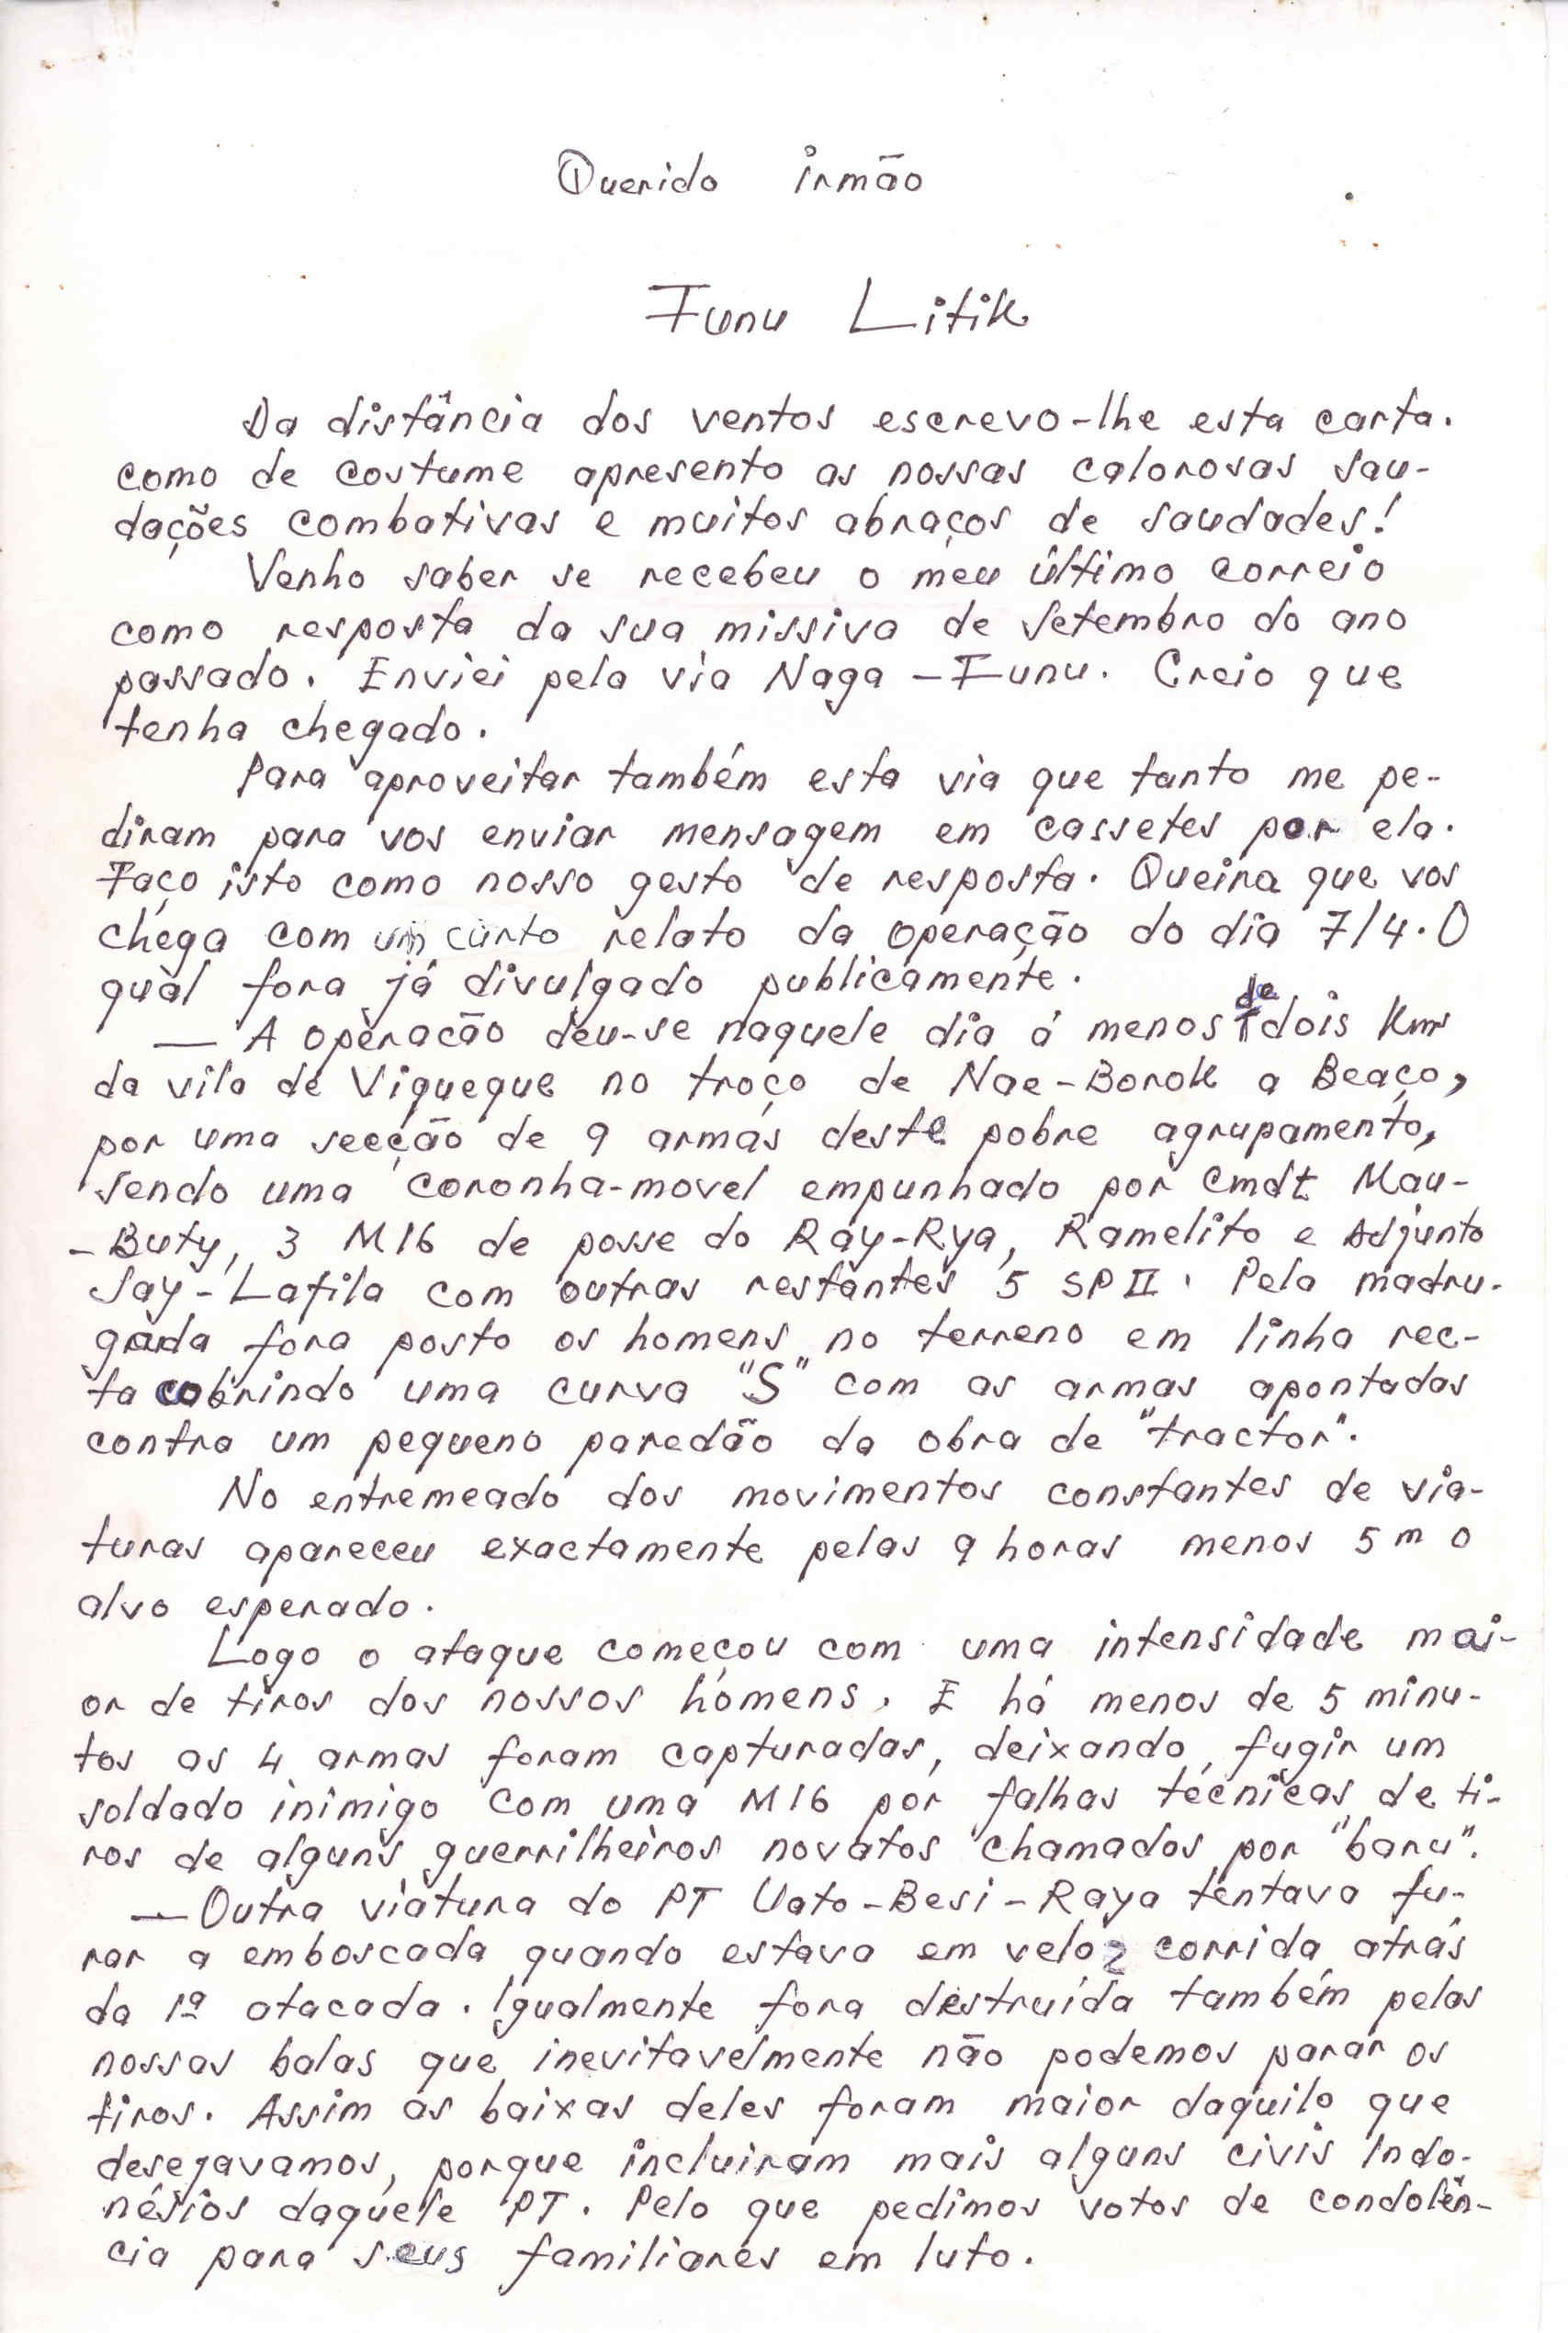 Querido irmão
Funu Litik
Da distância dos ventos escrevo-lhe esta carta.
como de costume apresento as nossas calorosas sau-
dações combativas e muitos abraços de saudades!
Venho saber se recebeu o meu último correio
como resposta da sua missiva de Setembro do ano
passado. Enviei pela via Naga-Funu. Creio que
tenha chegado.
Para aproveitar também esta via que tanto me pe-
diram para vos enviar mensagem em cassetes por ela.
Faço isto como nosso gesto de resposta. Queira que vos
chega com um curto relato da operação do dia 7/4. O
qual fora já divulgado publicamente.
— A operacão deu-se naquele dia á menos de dois Kms
da vila de Viqueque no troço de Nae-Borok a Beaço,
por uma secção de 9 armas deste pobre agrupamento,
sendo uma coronha-movel empunhado por cmdt Mau-
-Buty, 3 M16 de posse do Ray-Rya, Ramelito e Adjunto
Say-Lafila com outras restantes 5 SP II. Pela madru-
gada fora posto os homens no terreno em linha rec-
ta cobrindo uma curva "S" com as armas apontadas
contra um pequeno paredão da obra de "tractor".
No entremeado dos movimentos constantes de via-
turas apareceu exactamente pelas 9 horas menos 5 m o
alvo esperado.
Logo o ataque começou com uma intensidade mai-
or de tiros dos nossos homens. E há menos de 5 minu-
tos as 4 armas foram capturadas, deixando fugir um
soldado inimigo com uma M16 por falhas técnicas de ti-
ros de alguns guerrilheiros novatos chamados por "baru".
— Outra viatura do PT Uato-Besi-Raya tentava fu-
rar a emboscada quando estava em veloz corrida atrás
da 1ª atacada. Igualmente fora destruída também pelas
nossas balas que inevitavelmente não podemos parar os
tiros. Assim as baixas deles foram maior daquilo que
desejavamos, porque incluiram mais alguns civis Indo-
nésios daquele PT. Pelo que pedimos votos de condolên-
cia para seus familiares em luto.